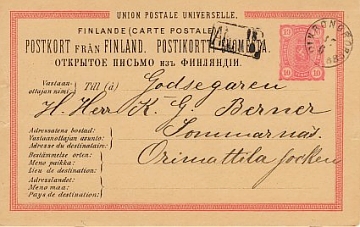 UNION POSTALE UNIVERSELLE.
FINLANDE (CARTE POSTALE)
POSTKORT FRÅN FINLAND. POSTIKORTTI
ОТКРЫТОЕ ПИСЬМО изъ ФИНЛЯНДІИ.
10 10
Vastaan-
ottajan nimi:
Till (à)
Godsegaren
H. Herr K. G. Berner
Sommarnäs
Orimattila Socken
Adressatens bostad:
Vastaanottajan asunto:
Adresse du destinataire:
Bestämmelse orten:
Meno paikka:
Lieu de destination:
Adresslandet:
Meno maa:
Pays de destination: